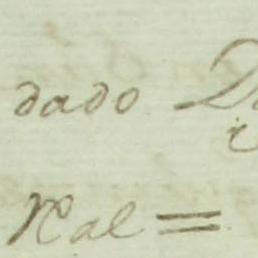 dado D
Real =